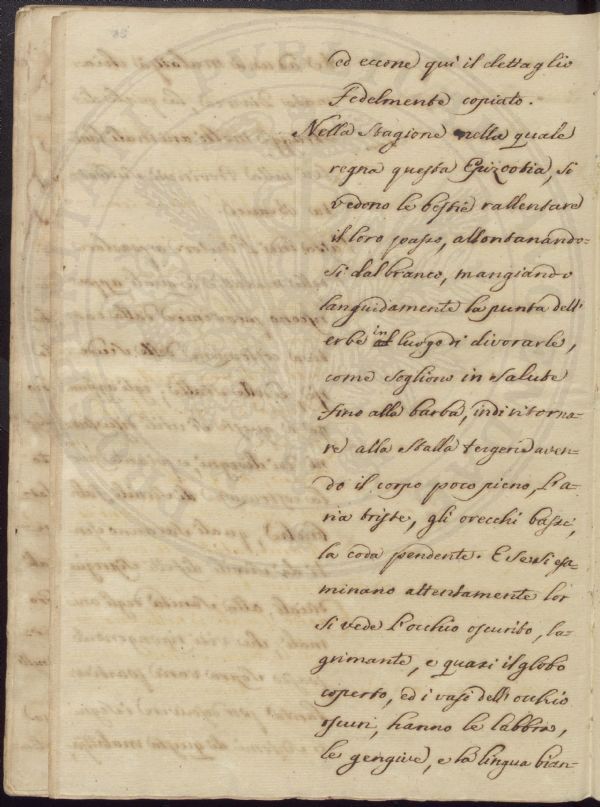 ed eccone qui il dettaglio
Fedelmente copiato.
Nella Stagione nella quale
regna questa Epizootia, si
vedono le bestie rallentare
il loro passo, allontanando=
si dal branco, mangiando
languidamente la punta dell'
erbe in luogo di divorarle,
come sogliono in salute
fino alla barba, indi ritorna=
re alla stalla aven=
do il corpo poco pieno, l'a=
ria triste, gli orecchi bassi,
la coda pendente. E se si esa=
minano attentamente lor
si vede l'occhio oscurito, la=
grimante, e quasi il globo
coperto, ed i vasi dell'occhio
oscuri, hanno le labbra,
le gengive, e la lingua bian=